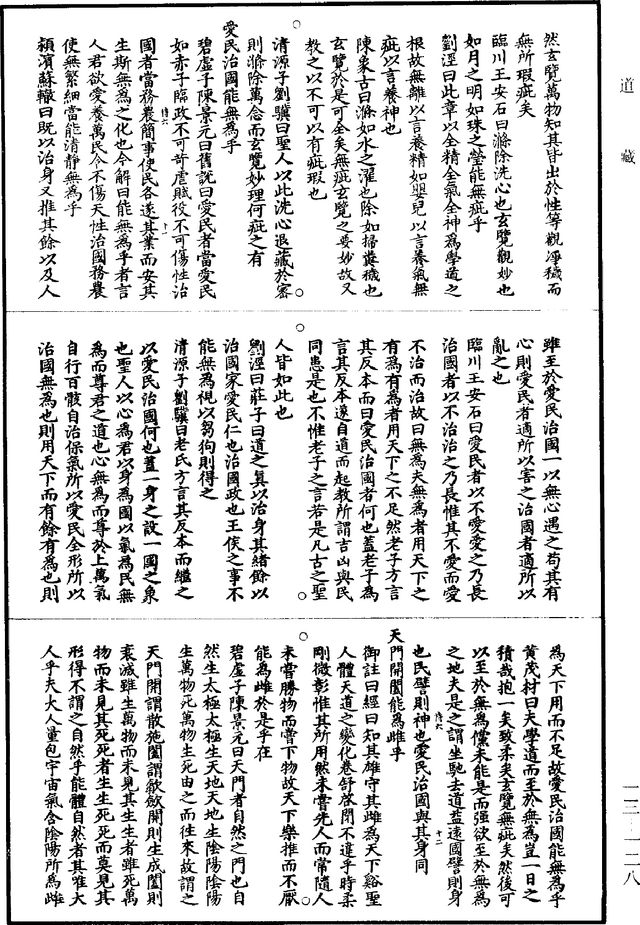 道藏
然玄覽萬物知其皆出於性等觀淨穢而
無所瑕疵矣
臨川王安石曰滌除洗心也玄覽觀妙也
如月之明如珠之瑩能無疵乎
劉涇曰此章以全精全氣全神為學道之
根故無離以言養精如嬰兒以言養氣無
疵以言養神也
陳象古曰滌如水之濯也除如掃糞穢也
玄覽於是可全矣無疵玄覽之要妙故又
教之以不可以有疵瑕也
清源子劉驥曰聖人以此洗心退藏於密
則滌除萬念而玄覽妙理何疵之有
愛民治國能無為乎
碧虛子陳景元曰舊說曰愛民者當愛民
如赤子臨政不可苛虐賦役不可傷性治
國者當務農簡事使民各遂其業而安其
生斯無為之化也今解曰能無為乎者言
人君欲愛養萬民令不傷天性治國務農
使無繁細當能清靜無為乎
潁濱蘇轍曰既以治身又推其餘以及人
雖至於愛民治國一以無心遇之苟其有
心則愛民者適所以害之治國者適所以
亂之也
臨川王安石曰愛民者以不愛愛之乃長
治國者以不治治之乃長惟其不愛而愛
不治而治故曰無為夫無為者用天下之
有為有為者用天下之不足然老子方言
其反本而曰愛民治國者何也蓋老子為
言其反本遂自道而起教所謂吉凶與民
同患是也不惟老子之言若是凡古之聖
人皆如此也
劉涇曰莊子曰道之真以治身其緒餘以
治國家愛民仁也治國政也王侯之事不
能無為視以芻狗則得之
清源子劉驥曰老氏方言其反本而繼之
以愛民治國何也蓋一身之設一國之象
也聖人以心為君以身為國以氣為民無
為而尊君之道也心無為而尊於上萬氣
自行百骸自治保氣所以愛民全形所以
治國無為也則用天下而有餘有為也則
為天下用而不足故愛民治國能無為乎
黃茂材曰夫學道而至於無為豈一日之
積哉抱一矣致柔矣玄覽無疵矣然後可
以至於無為儻未能是而强欲至於無為
之地夫是之謂坐馳去道益遠國譬則身
也民譬則神也愛民治國與其身同
天門開闔能為雌乎
御註曰經曰知其雄守其雌為天下谿聖
人體天道之變化卷舒啟閉不違乎時柔
剛微彰惟其所用然未嘗先人而常隨人
未嘗勝物而嘗下物故天下樂推而不厭
能為雌於是乎在
碧虛子陳景元曰天門者自然之門也自
然生太極太極生天地天地生陰陽陰陽
生萬物死萬物生死由之而往來故謂之
天門開謂散施闔謂歛斂開則生成闔則
衰滅雖生萬物而未見其生生者雖死萬
物而未見其死死者生生死死而莫見其
形得不謂之自然乎能體自然者其唯大
人乎夫大人量包宇宙氣含陰陽所為雌
一三—一二八